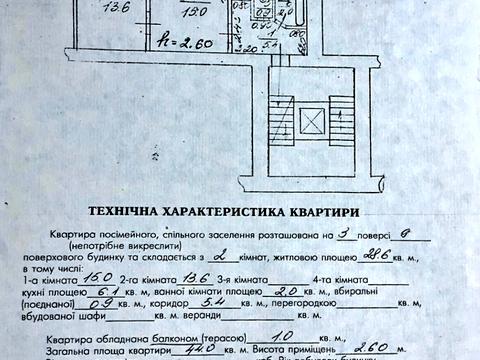 13.6
15.0
h = 2.60
5.4
ТЕХНІЧНА ХАРАКТЕРИСТИКА КВАРТИРИ
Квартира посімейного, спільного заселення розташована на 3 поверсі 9
(непотрібне викреслити)
поверхового будинку та складається з 2 кімнат, житловою площею 28.6 кв. м.,
в тому числі:
1-а кімната 15.0 2-га кімната 13.6 3-я кімната 4-та кімната
кухні площею 6.1 кв. м, ванної кімнати площею 2.0 кв. м, вбиральні
(поєднаної) 0.9 кв. м, коридор 5.4 кв. м., перегородкою кв. м,
вбудованої шафи кв. м. веранди кв. м.
Квартира обладнана балконом (терасою) 1.0 кв. м.,
Загальна площа квартири 44.0 кв. м. Висота приміщень 2.60 м.